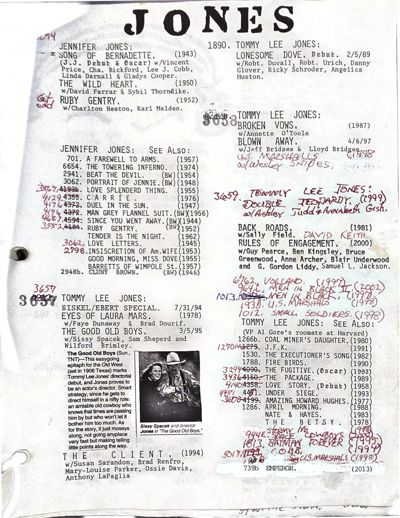 JONES
JENNIFER JONES:
SONG OF BERNADETTE. (1943)
(J.J. Debut & Oscar) w/Vincent
Price, Cha. Bickford, Lee J. Cobb,
Linda Darnall & Gladys Cooper.
THE WILD HEART. (1950)
w/David Farrar & Sybil Thorndike.
RUBY GENTRY. (1952)
w/Charlton Heston, Karl Malden.
JENNIFER JONES: SEE ALSO:
701. A FAREWELL TO ARMS. (1957)
6654. THE TOWERING INFERNO. (1974)
2941. BEAT THE DEVIL. (BW) (1954)
3062. PORTRAIT OF JENNIE. (BW) (1948)
LOVE SPLENDED THING. (1955)
CARRIE. (1976)
DUEL IN THE SUN. (1947)
MAN GREY FLANNEL SUIT. (BW) (1956)
SINCE YOU WENT AWAY. (BW) (1944)
RUBY GENTRY. (BW) (1952)
TENDER IS THE NIGHT. (1962)
LOVE LETTERS. (1945)
INSCIRETION OF Am.WIFE (1953)
GOOD MORNING, MISS DOVE (1955)
BARRETTS OF WIMPOLE St. (1957)
2948b. CLUNY BROWN. (BW) (1946)
3657
TOMMY LEE JONES:
SISKEL/EBERT SPECIAL. 7/31/94
EYES OF LAURA MARS. (1978)
w/Faye Dunaway & Brad Dourif.
THE GOOD OLD BOYS. 3/5/95
w/Sissy Spacek, Sam Sheperd and
Wilford Brimley.
The Good Old Boys (Sun.,
TNT)—This easygoing
epitaph for the Old West
(set in 1906 Texas) marks
Tommy Lee Jones' directorial
debut, and Jones proves to
be an actor's director. Smart
strategy, since he gets to
direct himself in a nifty role:
an amiable old cowboy who
knows that times are passing
him by but who won't let it
bother him too much. As
for the story, it just moseys
along, not going anyplace
very fast but making telling
little points along the way.
Sissy Spacek and director
Jones in "The Good Old Boys."
THE CLIENT. (1994)
w/Susan Sarandon, Brad Renfro,
Mary-Louise Parker, Ossie Davis,
Anthony LaPaglia
1890. TOMMY LEE JONES:
LONESOME DOVE, Debut. 2/5/89
w/Robt. Duvall, Robt. Urich, Danny
Glover, Ricky Schroder, Angelica
Huston.
TOMMY LEE JONES:
BROKEN VOWS. (1987)
w/Annette O'Toole
BLOWN AWAY. 4/6/97
w/Jeff Bridges & Lloyd Bridges.
U.S. MARSHALLS (1998
w/Wesley Snipes,
3659. TOMMY LEE JONES:
DOUBLE JEOPARDY. (1999)
w/Ashley Judd & Annabeth Gish.
BACK ROADS. (1981)
w/Sally Field. DAVID KEITH.
RULES OF ENGAGEMENT. (2000)
w/Guy Pearce, Ben Kingsley, Bruce
Greenwood, Anne Archer, Blair Underwood
and G. Gordon Liddy. Samuel L. Jackson.
VOLCANO. (1997)
MEN IN BLACK II (2002)
MEN IN BLACK. (1997)
U.S. MARSHALS (1998)
1012. SMALL SOLDIERS. (1998)
TOMMY LEE JONES: SEE ALSO:
(VP Al Gore's roomate at Harvard)
1266b. COAL MINER'S DAUGHTER. (1980)
J.F.K. (1991)
1530. THE EXECUTIONER'S SONG (1982)
1788. FIRE BIRDS. (1990)
THE FUGITIVE. (Oscar) (1993)
THE PACKAGE. (1989)
LOVE STORY. (Debut) (1958)
UNDER SIEGE. (1993)
AMAZING HOWARD HUGHES. (1977)
1286. APRIL MORNING. (1988)
NATE & HAYES. (1983)
THE BETSY. (1978)
COBB.
U.S. MARSHALS (1998)
739b EMPEROR. (2013)